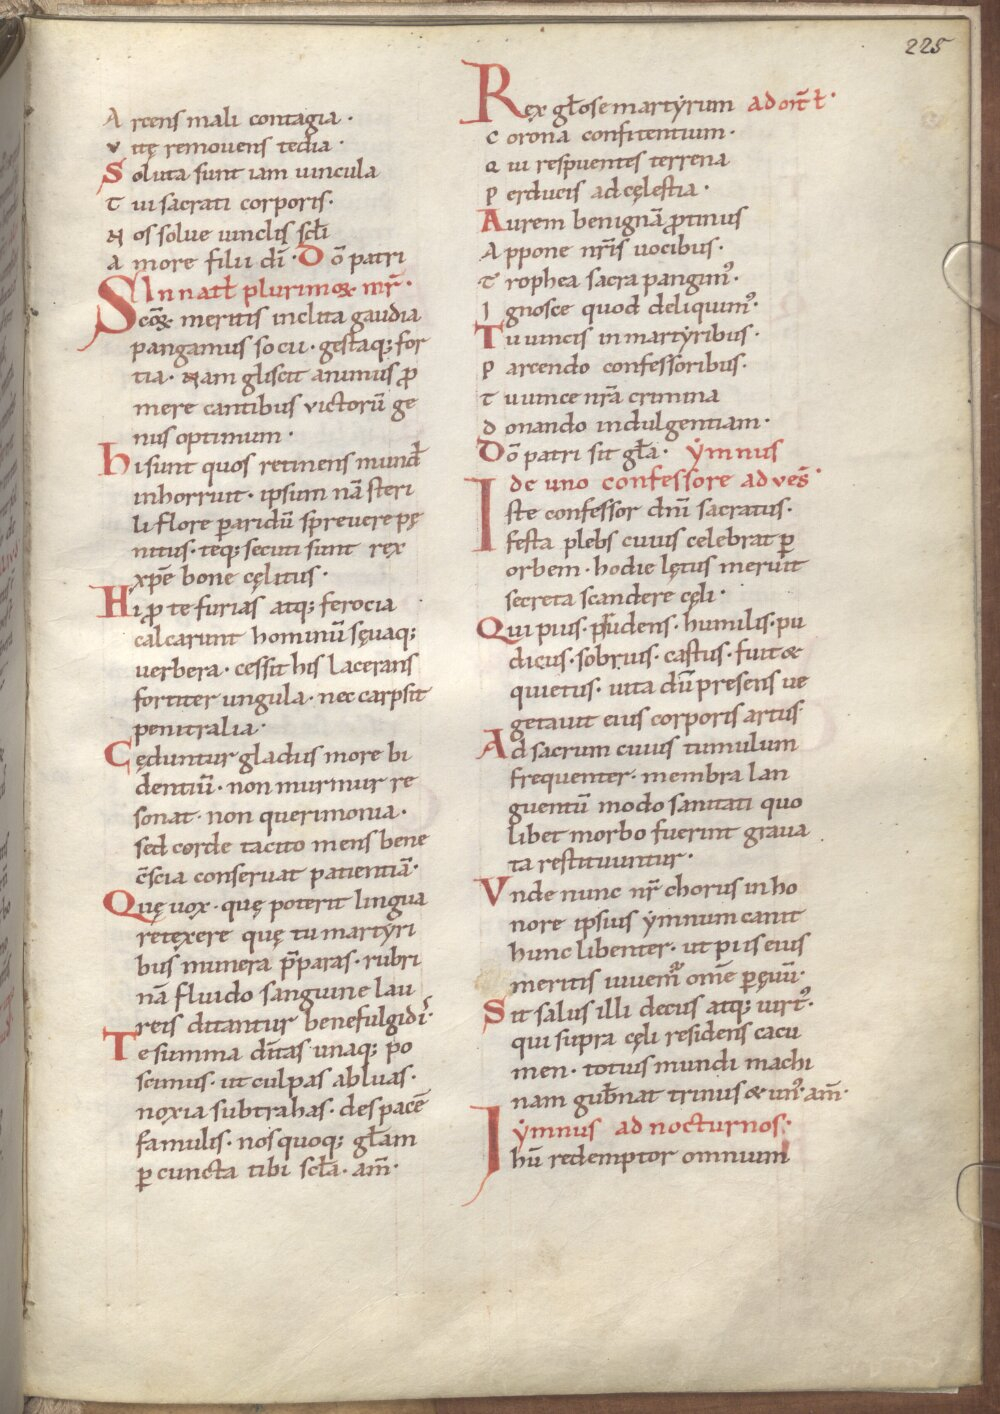 225
Arcens mali contagia ·
vitę removens tedia ·
Soluta sunt iam uincula
Tui sacrati corporis·
Nos solve uinclis scłi
amore filii dī · Dō patri
In natł plurimoꝝ mr̄·
Scōꝝ meritis inclita gaudia
pangamus socii · gestaq; for
tia · nam gliscit animus ꝓ
mere cantibus victorū ge
nus optimum ·
Hi sunt quos retinens mund̄
inhorruit · ipsum nā steri
li flore ꝑaridū sprevere pę
nitus · teq; secuti sunt rex
xp̄e bone cęlitus ·
Hi ꝓ te furias atq; ferocia
calcarunt hominū sęvaq;
verbera · cessit his lacerans
fortiter ungula · nec carpsit
penitralia ·
Cęduntur gladiis more bi
dentiū · non murmur re
sonat · non querimonia ·
sed corde tacito mens bene
c̄scia conservat patientiā·
Quę uox · quę poterit lingua
retexere quę tu martẏri
bus munera p̄paras · rubri
nā fluido sanguine lau
reis ditantur bene fulgidī·
Te summa dīt̄as unaq; po
scimus · ut culpas abluas ·
noxia subtrahas · des pacē
famulis · nos quoq; głam
ꝑ cuncta tibi scła · am̄·
Rex głose martẏrum ad or̄t ł·
Corona confitentium ·
Qui respuentes terrena
Perducis ad cęlestia ·
Aurem benignā ꝓtinus
Appone nr̄is uocibus ·
Trophea sacra pangim᾿·
Ignosce quod deliquim᾿·
Tu uincis in martẏribus ·
Parcendo confessoribus·
Tu uince nr̄a crimina
donando indulgentiam ·
Dō patri sit gła · ẏmnus
de uno confessore ad ves̄·
Iste confessor dn̄i sacratus·
festa plebs cuius celebrat ꝑ
orbem · hodie lętus meruit
secreta scandere cęli ·
Qui pius · prudens · humilis · pu
dicus · sobrius · castus · fuit &
quietus · uita dū presens ve
getavit eius corporis artus·
Ad sacrum cuius tumulum
frequenter · membra lan
guentū modo sanitati quo
libet morbo fuerint grava
ta restituuntur ·
Vnde nunc nr̄ chorus in ho
nore ipsius ẏmnum canit
hunc libenter · ut piis eius
meritis iuuem᷑ om̄e ꝑęuū·
Sit salus illi decus atq; uirt᾿·
qui supra cęli residens cacu
men · totius mundi machi
nam gub̄nat trinus & un᾿· am̄·
ẏmnus ad nocturnos;
Ihū redemptor omnium